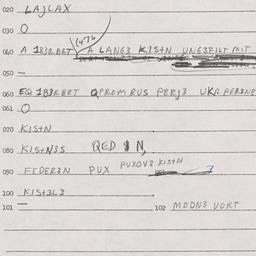 020 LAJLAX
030 O
(476
040 A 1B3R.BET A LANG3 KISTN UNG3FILT MIT
050 —
060 EQ 1B3R.BET QPROM RUS PERJ3 UKR PER3NE
061 O
070 KISTN
080 KISTN3S QED $ N,
090 FEDER3N PUX PUXOV3 KISTN
100 KIST3L3
101 — 102 MODN3 VORT